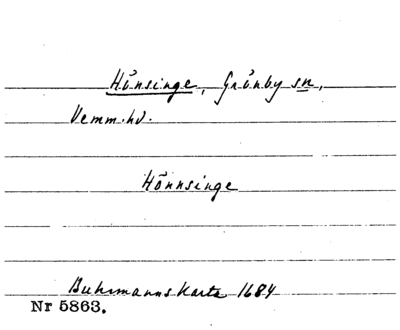 Hönsinge, Grönby sn,
Vemm.hd.
Hönnsinge
Buhrmanns Karta 1684
Nr 5863.